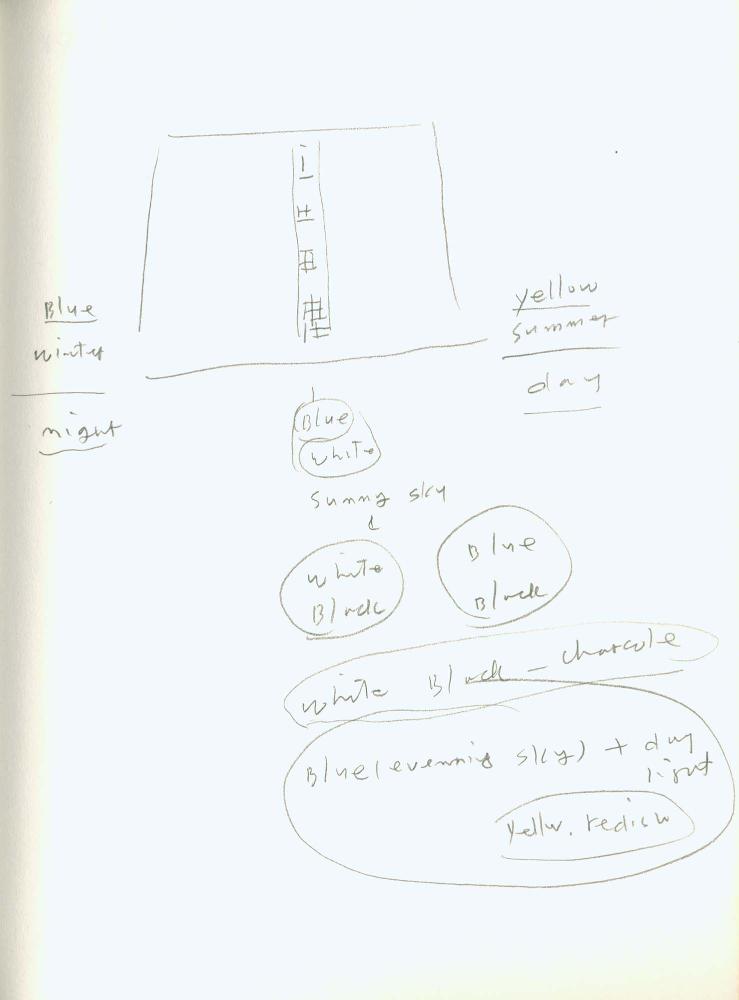 Blue
winter
night
yellow
summer
day
Blue
white
sunny sky
white
Black
Blue
Black
white Black - charcole
Blue (evenning sky) + day
light
yellw. redish